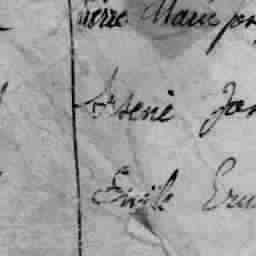 Pierre Marie
Arsène Jan
Emile Ern